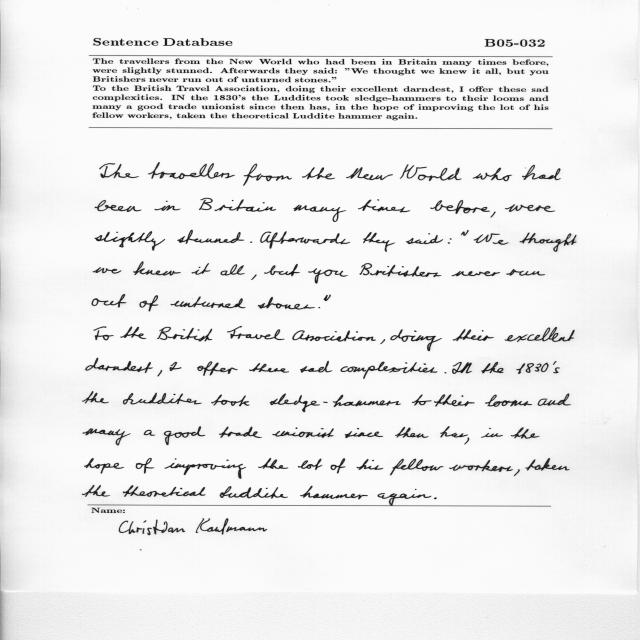 Sentence Database B05-032
The travellers from the New World who had been in Britain many times before,
were slightly stunned. Afterwards they said: "We thought we knew it all, but you
Britishers never run out of unturned stones."
To the British Travel Association, doing their excellent darndest, I offer these sad
complexities. IN the 1830's the Luddites took sledge-hammers to their looms and
many a good trade unionist since then has, in the hope of improving the lot of his
fellow workers, taken the theoretical Luddite hammer again.
The travellers from the New World who had
been in Britain many times before, were
slightly stunned. Afterwards they said: "We thought
we knew it all, but you Britishers never run
out of unturned stones."
To the British Travel Association, doing their excellent
darndest, I offer these sad complexities. IN the 1830's
the Luddites took sledge-hammers to their looms and
many a good trade unionist since then has, in the
hope of improving the lot of his fellow workers, taken
the theoretical Luddite hammer again.
Name:
Christian Kaufmann